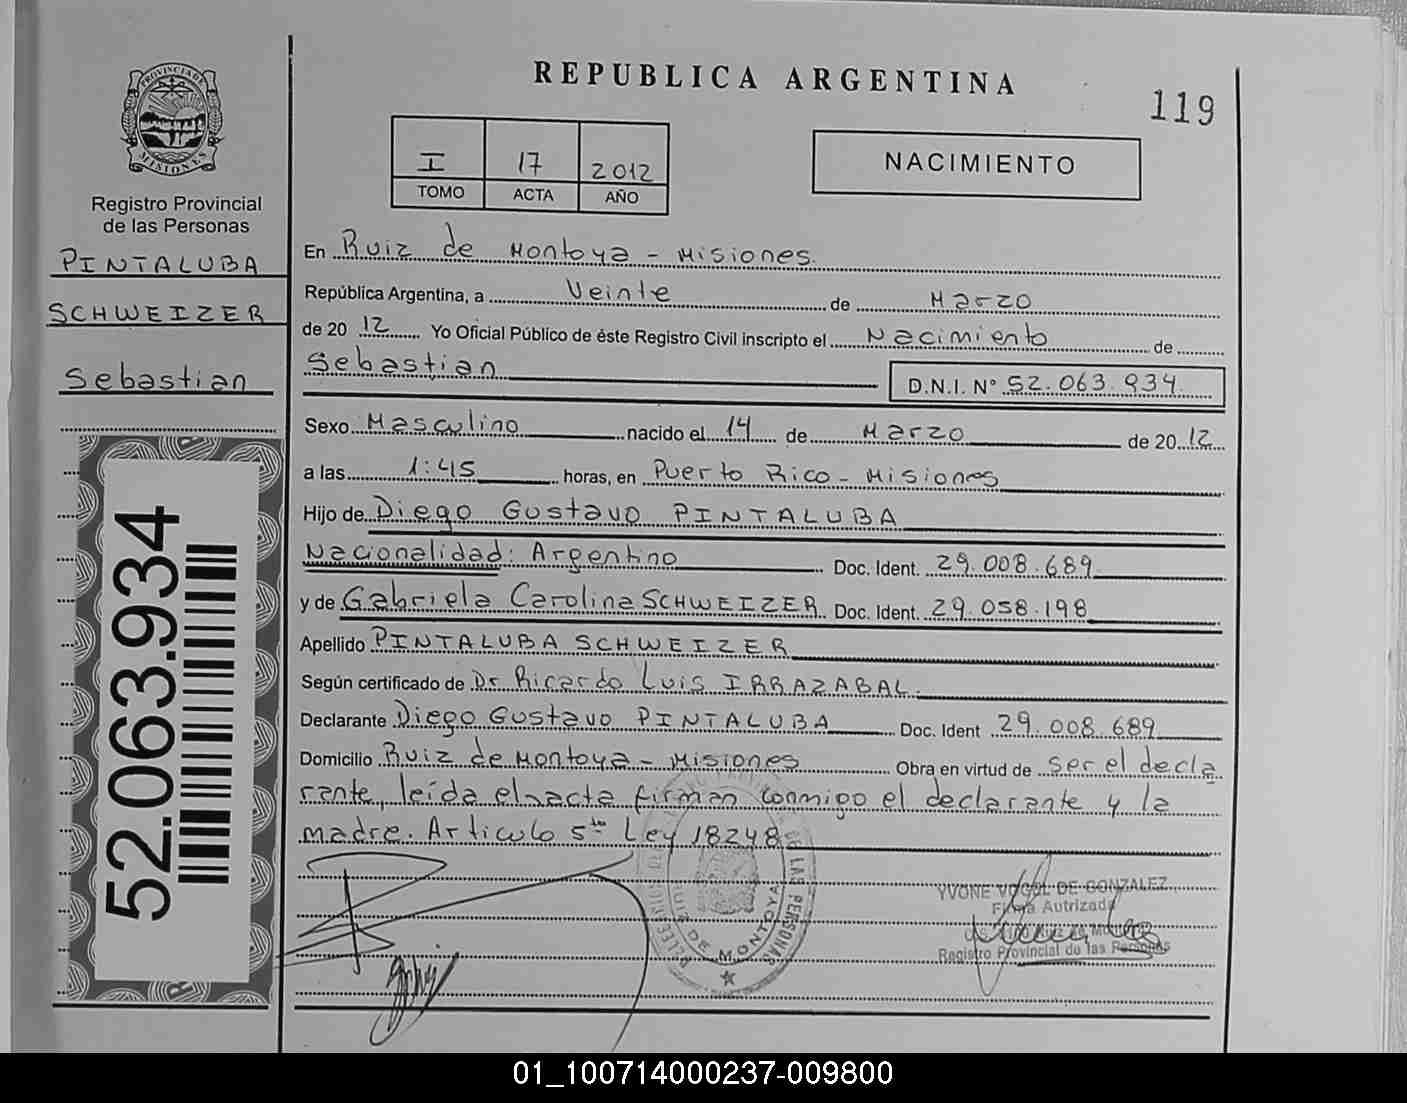 REPUBLICA ARGENTINA
119
PROVINCIA DE
MISIONES
Registro Provincial
de las Personas
PINTALUBA
SCHWEIZER
Sebastian
52.063.934
I 17 2012
TOMO ACTA AÑO
NACIMIENTO
En Ruiz de Montoya - Misiones.
República Argentina, a Veinte de Marzo
de 20 12 Yo Oficial Público de éste Registro Civil inscripto el Nacimiento de
Sebastian D.N.I. N° 52.063.934
Sexo Masculino nacido el 14 de Marzo de 20 12
a las 1:45 horas, en Puerto Rico - Misiones
Hijo de Diego Gustavo PINTALUBA
Nacionalidad: Argentino Doc. Ident. 29.008.689
y de Gabriela Carolina SCHWEIZER Doc. Ident. 29.058.198
Apellido PINTALUBA SCHWEIZER
Según certificado de Dr Ricardo Luis IRRAZABAL.
Declarante Diego Gustavo PINTALUBA Doc. Ident 29.008.689
Domicilio Ruiz de Montoya - Misiones Obra en virtud de ser el decla
rante, leída el acta firman conmigo el declarante y la
madre. Articulo 5to Ley 18248
DE LAS PERSONAS
RUIZ DE MONTOYA
YVONE VOGEL DE GONZALEZ
Firma Autrizada
Registro Provincial de las Personas
01_100714000237-009800